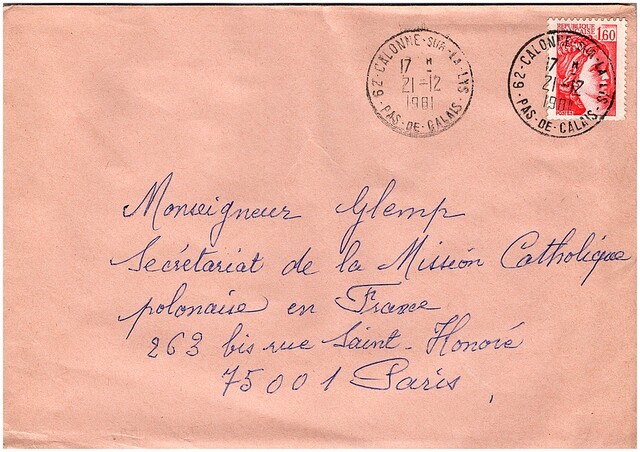 62-CALONNE-SUR-LA-LYS
17 H
21-12
1981
PAS-DE-CALAIS
REPUBLIQUE FRANÇAISE
1,60
62-CALONNE-SUR-LA-LYS
17 H
21-12
1981
PAS-DE-CALAIS
Monseigneur Glemp
Secrétariat de la Mission Catholique
polonaise en France
263 bis rue Saint-Honoré
75001 Paris